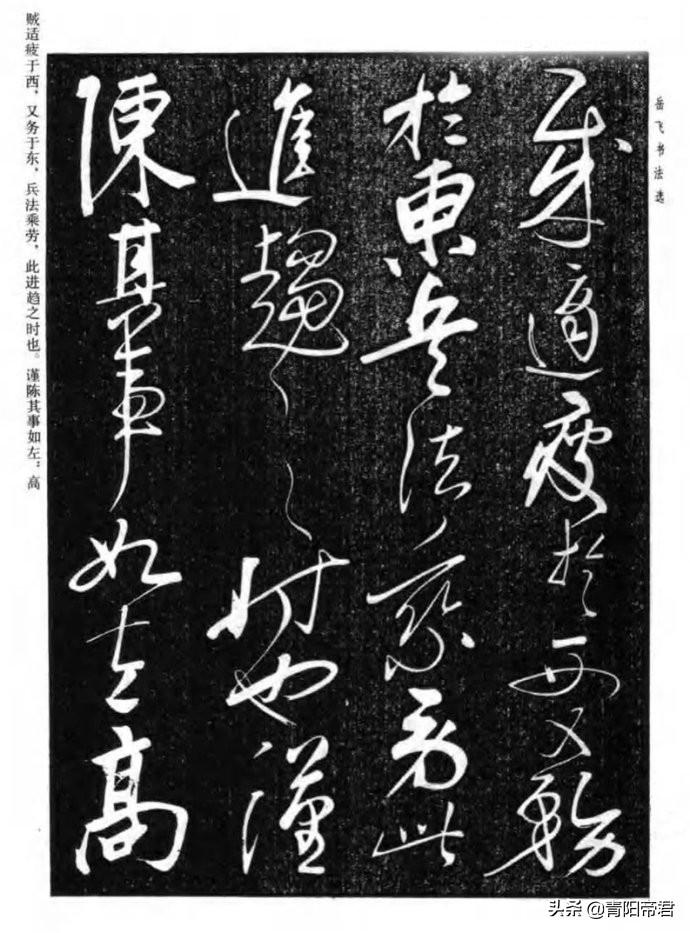 岳飞书法选
賊適疲於西又務
於東兵法乘勞此
進趨之時也謹
陳其事如左高
贼适疲于西，又务于东，兵法乘劳，此进趋之时也。谨陈其事如左：高
头条 @青阳帝君